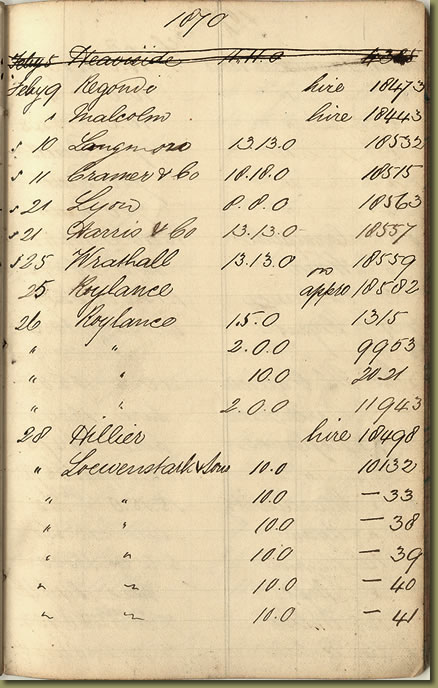 1870
Feby 5 Heaviside 11.11.0
Feby 9 Regondi hire 18473
" Malcolm hire 18443
" 10 Langmore 13.13.0 18532
" 11 Cramer & Co 18.18.0 18515
" 21 Lyon 8.8.0 18563
" 21 Harris & Co 13.13.0 18557
" 25 Wrathall 13.13.0 18559
25 Roylance on appro 18582
26 Roylance 15.0 1315
" " 2.0.0 9953
" " 10.0 2021
" " 2.0.0 11943
28 Hillier hire 18498
" Loewenstark & Sons 10.0 10132
" " 10.0 — 33
" " 10.0 — 38
" " 10.0 — 39
" " 10.0 — 40
" " 10.0 — 41